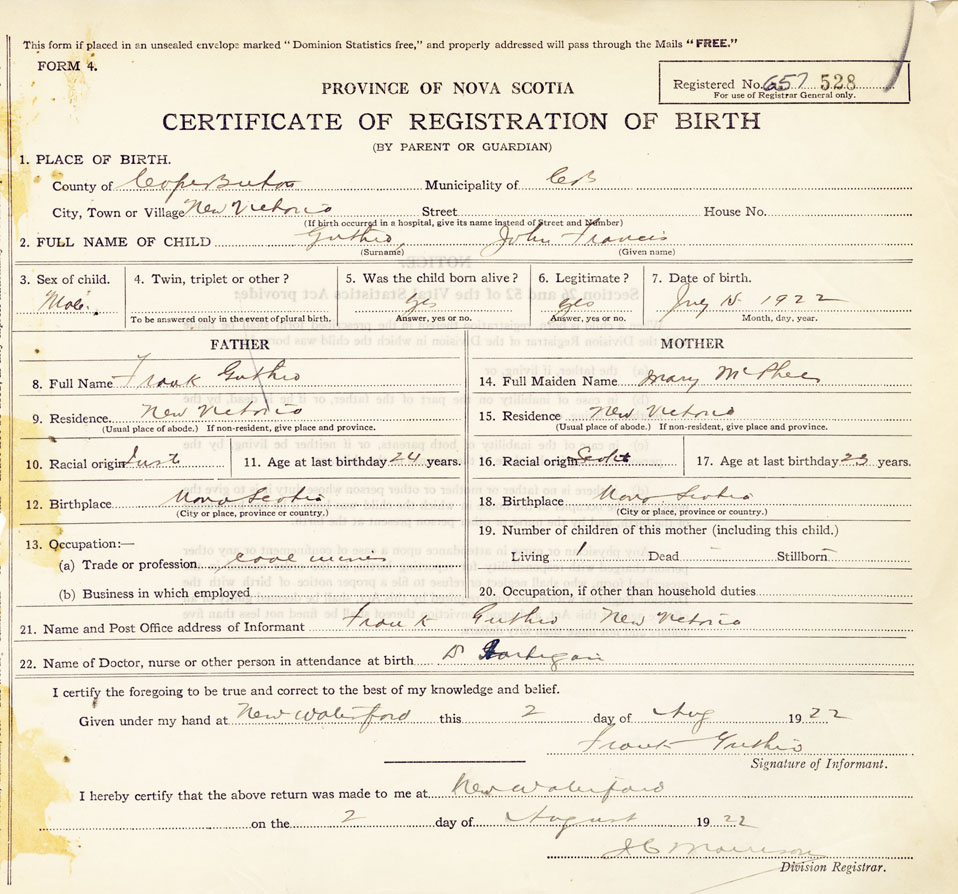 This form if placed in an unsealed envelope marked "Dominion Statistics free," and properly addressed will pass through the Mails "FREE."
FORM 4.
Registered No. 657 528
For use of Registrar General only.
PROVINCE OF NOVA SCOTIA
CERTIFICATE OF REGISTRATION OF BIRTH
(BY PARENT OR GUARDIAN)
1. PLACE OF BIRTH.
County of Cape Breton Municipality of CB
City, Town or Village New Victoria Street House No.
(If birth occurred in a hospital, give its name instead of Street and Number)
2. FULL NAME OF CHILD Guthro, John Francis
(Surname) (Given name)
3. Sex of child. 4. Twin, triplet or other? 5. Was the child born alive? 6. Legitimate? 7. Date of birth.
Male. yes yes July 15 1922
To be answered only in the event of plural birth. Answer, yes or no. Answer, yes or no. Month, day, year.
FATHER MOTHER
8. Full Name Frank Guthro 14. Full Maiden Name Mary McPhee
9. Residence. New Victoria 15. Residence New Victoria
(Usual place of abode.) If non-resident, give place and province. (Usual place of abode.) If non-resident, give place and province.
10. Racial origin 11. Age at last birthday 24 years. 16. Racial origin Scotch 17. Age at last birthday 23 years.
12. Birthplace Nova Scotia 18. Birthplace Nova Scotia
(City or place, province or country.) (City or place, province or country.)
13. Occupation:— 19. Number of children of this mother (including this child.)
(a) Trade or profession coal miner Living 1 Dead Stillborn
(b) Business in which employed 20. Occupation, if other than household duties
21. Name and Post Office address of Informant Frank Guthro New Victoria
22. Name of Doctor, nurse or other person in attendance at birth Dr Hartigan
I certify the foregoing to be true and correct to the best of my knowledge and belief.
Given under my hand at New Waterford this 2 day of Aug 1922
Frank Guthro
Signature of Informant.
I hereby certify that the above return was made to me at New Waterford
on the 2 day of August 1922
J C Morrison
Division Registrar.